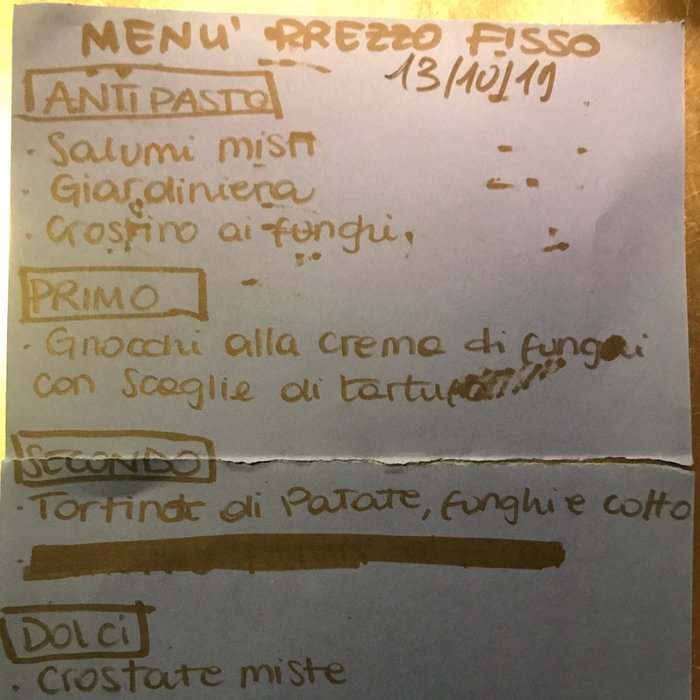 MENU' PREZZO FISSO
13/10/19
ANTIPASTO
· Salumi misti
· Giardiniera
· Crostino ai funghi.
PRIMO
· Gnocchi alla crema di funghi
con scaglie di tartufo
SECONDO
· Tortino di patate, funghi e cotto
DOLCI
· crostate miste